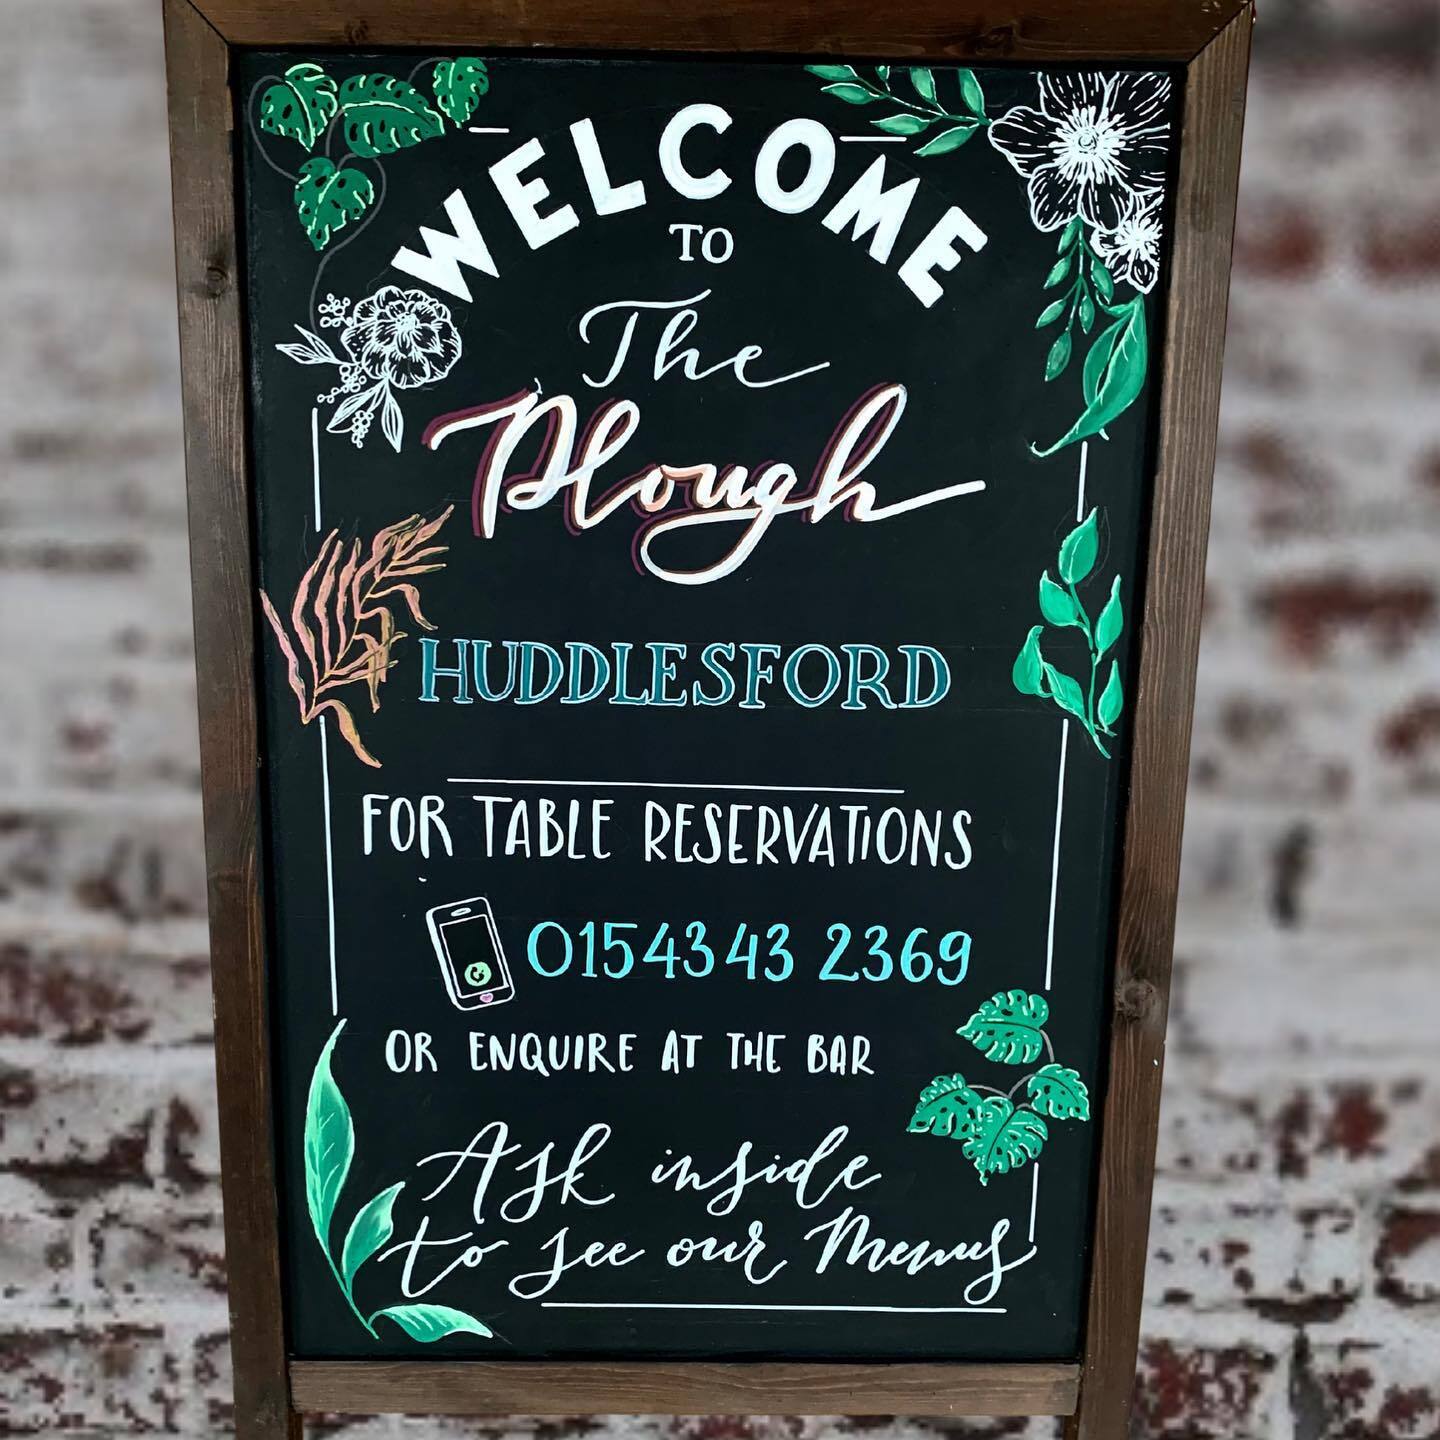 WELCOME
TO
The
Plough
HUDDLESFORD
FOR TABLE RESERVATIONS
01543 43 2369
OR ENQUIRE AT THE BAR
Ask inside
to see our Menus